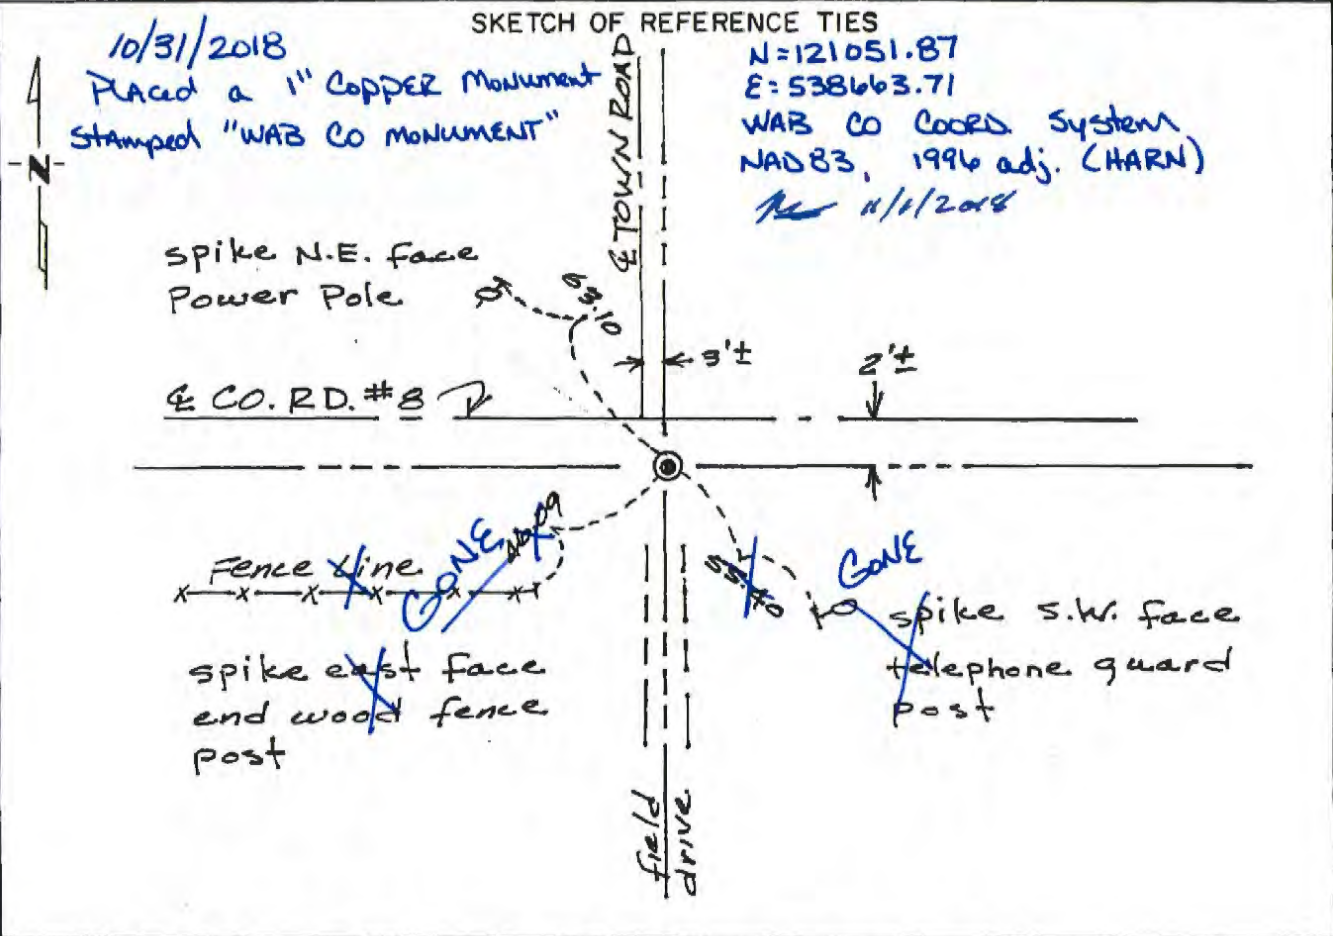 SKETCH OF REFERENCE TIES
10/31/2018
Placed a 1" Copper Monument
Stamped "WAB Co MONUMENT"
N=121051.87
E=538663.71
WAB CO COORD. System
NAD83, 1996 adj. (HARN)
11/1/2018
-N-
℄ TOWN ROAD
spike N.E. face
Power Pole
53.10
3'±
2'±
℄ CO. RD. #8
Fence Line
GONE
spike east face
end wood fence
post
55.40
GONE
spike S.W. face
telephone guard
post
field
drive